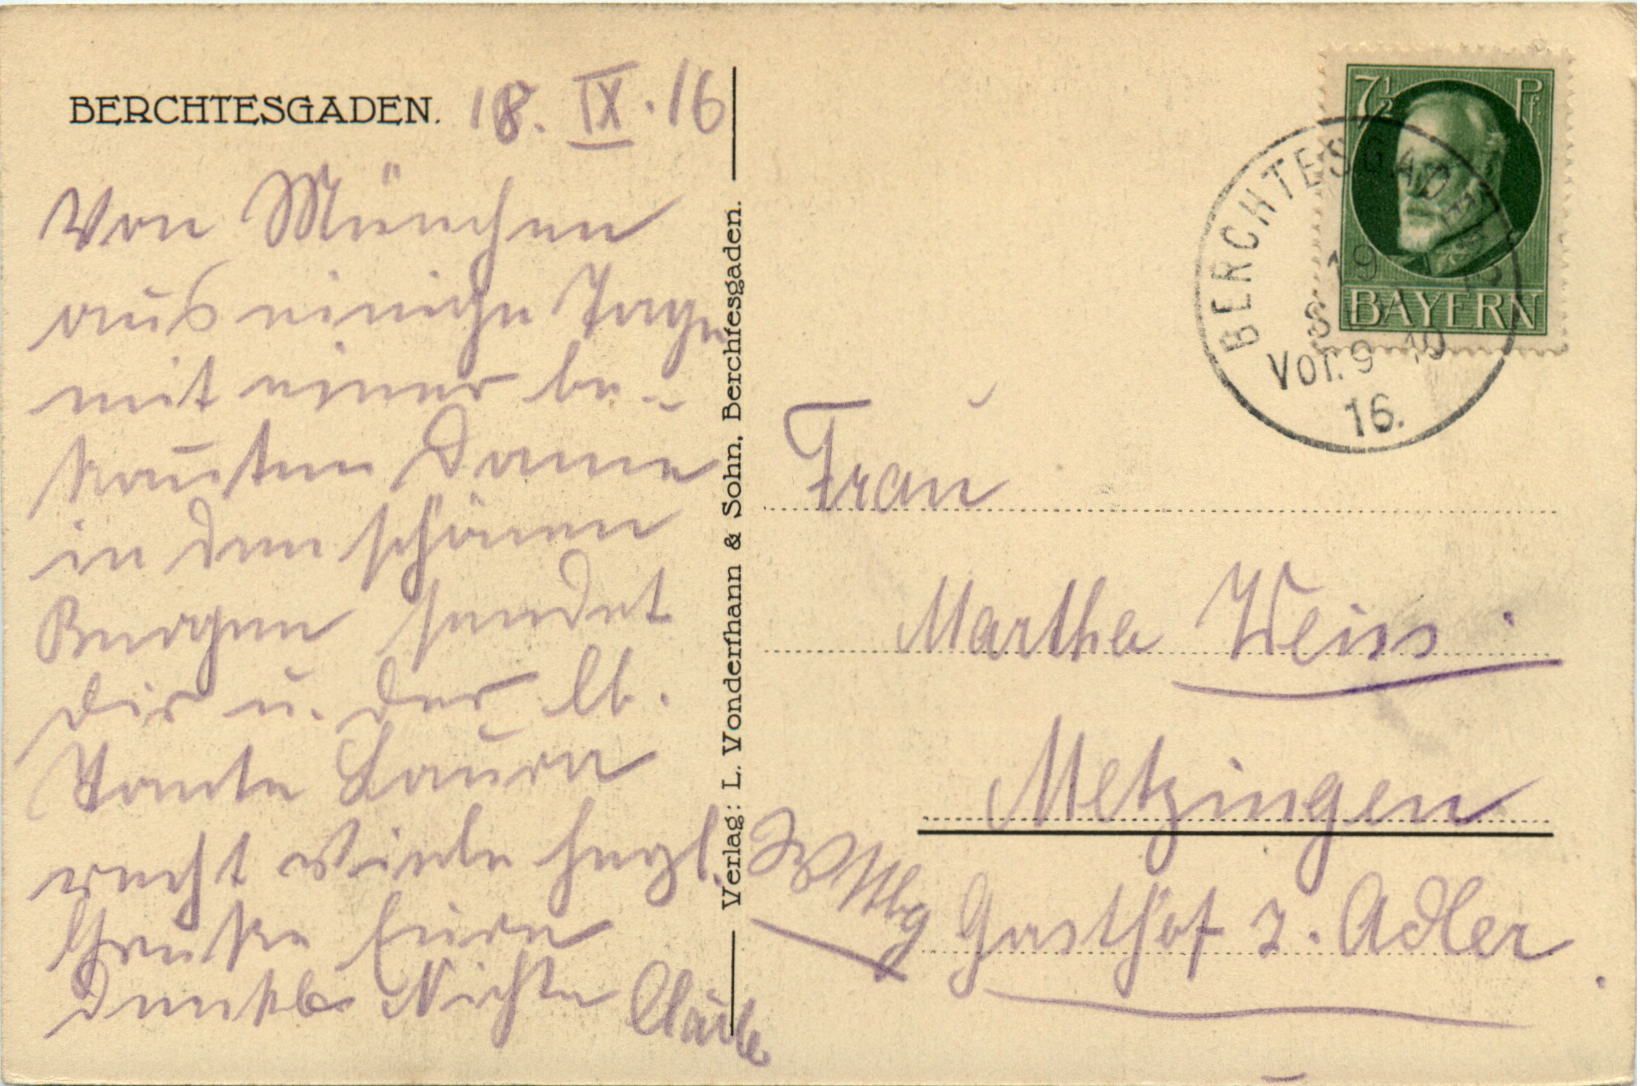 BERCHTESGADEN. 18. IX. 16
Von München
aus einige Tage
mit einer be-
kannten Dame
in den schönen
Bergen sendet
Dir u. der lb.
Tante Laura
recht viele herzl.
Grüße Eure
dankb. Nichte Cläre
Verlag: L. Vonderthann & Sohn, Berchtesgaden.
7½ Pf
BAYERN
BERCHTESGADEN
19
S
Vor. 9-10
16.
Frau
Martha Weiss.
Metzingen
Wttbg
Gasthof z. Adler.